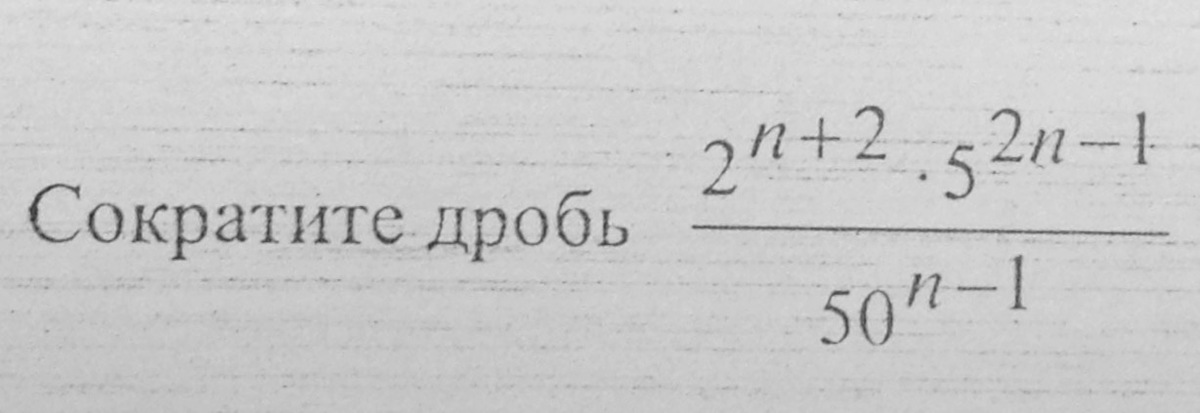 Сократите дробь \frac{2^{n+2} \cdot 5^{2n-1}}{50^{n-1}}